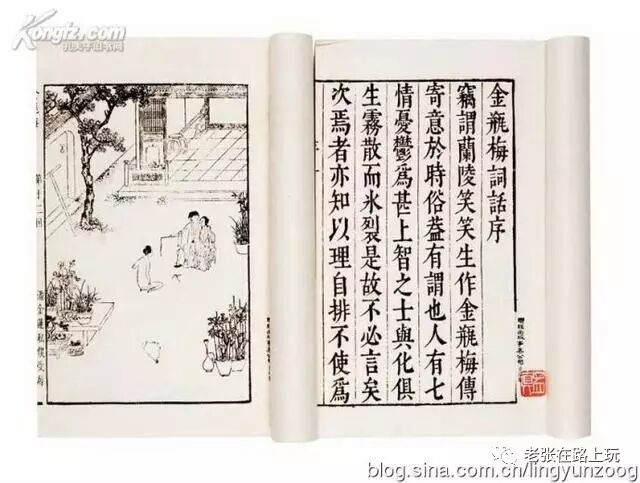 Kongfz.com
孔夫子旧书网
金瓶梅詞話序
竊謂蘭陵笑笑生作金瓶梅傳
寄意於時俗葢有謂也人有七
情憂鬱爲甚上智之士與化俱
生霧散而氷裂是故不必言矣
次焉者亦知以理自排不使爲
聯經出版事業公司
第十二回
潘金蓮私僕受辱
老张在路上玩
blog.sina.com.cn/lingyunzoog